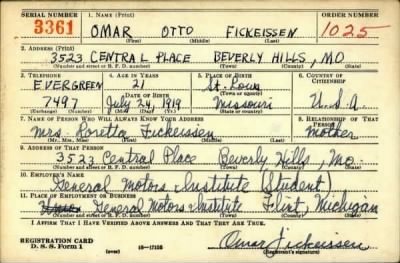 SERIAL NUMBER 1. NAME (Print) ORDER NUMBER
3361 OMAR OTTO FICKEISSEN 1025
(First) (Middle) (Last)
2. ADDRESS (Print)
3523 CENTRAL PLACE BEVERLY HILLS, MO
(Number and street or R. F. D. number) (Town) (County) (State)
3. TELEPHONE 4. AGE IN YEARS 5. PLACE OF BIRTH 6. COUNTRY OF CITIZENSHIP
EVERGREEN 21 St. Louis
DATE OF BIRTH (Town or county)
7497 July 24, 1919 Missouri U.S.A.
(Exchange) (Number) (Mo.) (Day) (Yr.) (State or country)
7. NAME OF PERSON WHO WILL ALWAYS KNOW YOUR ADDRESS 8. RELATIONSHIP OF THAT PERSON
Mrs. Loretta Fickeissen Mother
(Mr., Mrs., Miss) (First) (Middle) (Last)
9. ADDRESS OF THAT PERSON
3523 Central Place Beverly Hills, Mo.
(Number and street or R. F. D. number) (Town) (County) (State)
10. EMPLOYER'S NAME
General Motors Institute (Student)
11. PLACE OF EMPLOYMENT OR BUSINESS
General Motors Institute Flint, Michigan
(Number and street or R. F. D. number) (Town) (County) (State)
I AFFIRM THAT I HAVE VERIFIED ABOVE ANSWERS AND THAT THEY ARE TRUE.
REGISTRATION CARD
D. S. S. Form 1 (over) 16-17105 Omar Fickeissen
(Registrant's signature)